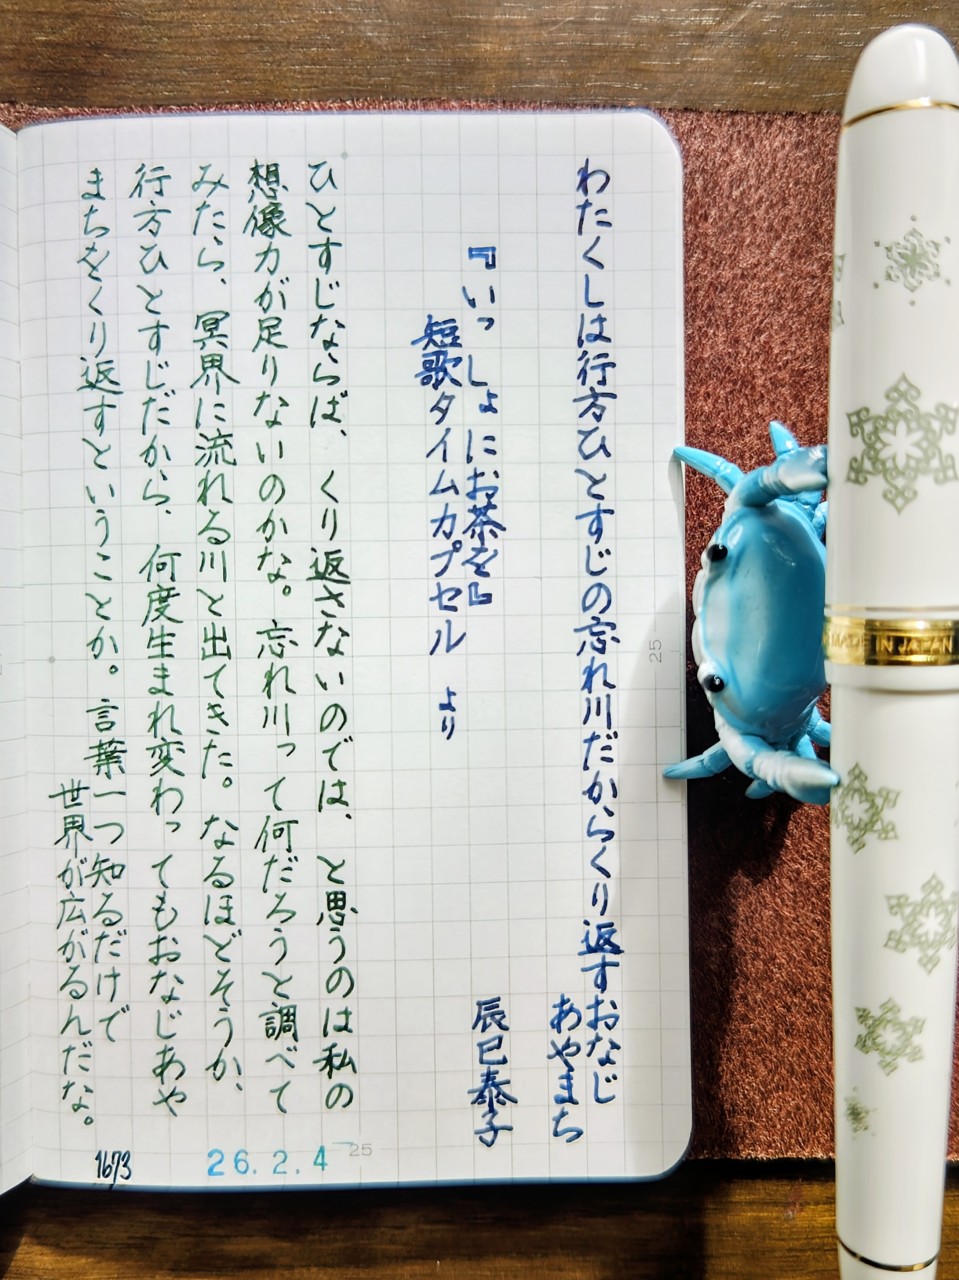 わたくしは行方ひとすじの忘れ川だからくり返すおなじ
あやまち
『いっしょにお茶を』
短歌タイムカプセル より
辰巳泰子
ひとすじならば、くり返さないのでは、と思うのは私の
想像力が足りないのかな。忘れ川って何だろうと調べて
みたら、冥界に流れる川と出てきた。なるほどそうか、
行方ひとすじだから、何度生まれ変わってもおなじあや
まちをくり返すということか。言葉一つ知るだけで
世界が広がるんだな。
1673
26.2.4
25
25
MADE IN JAPAN